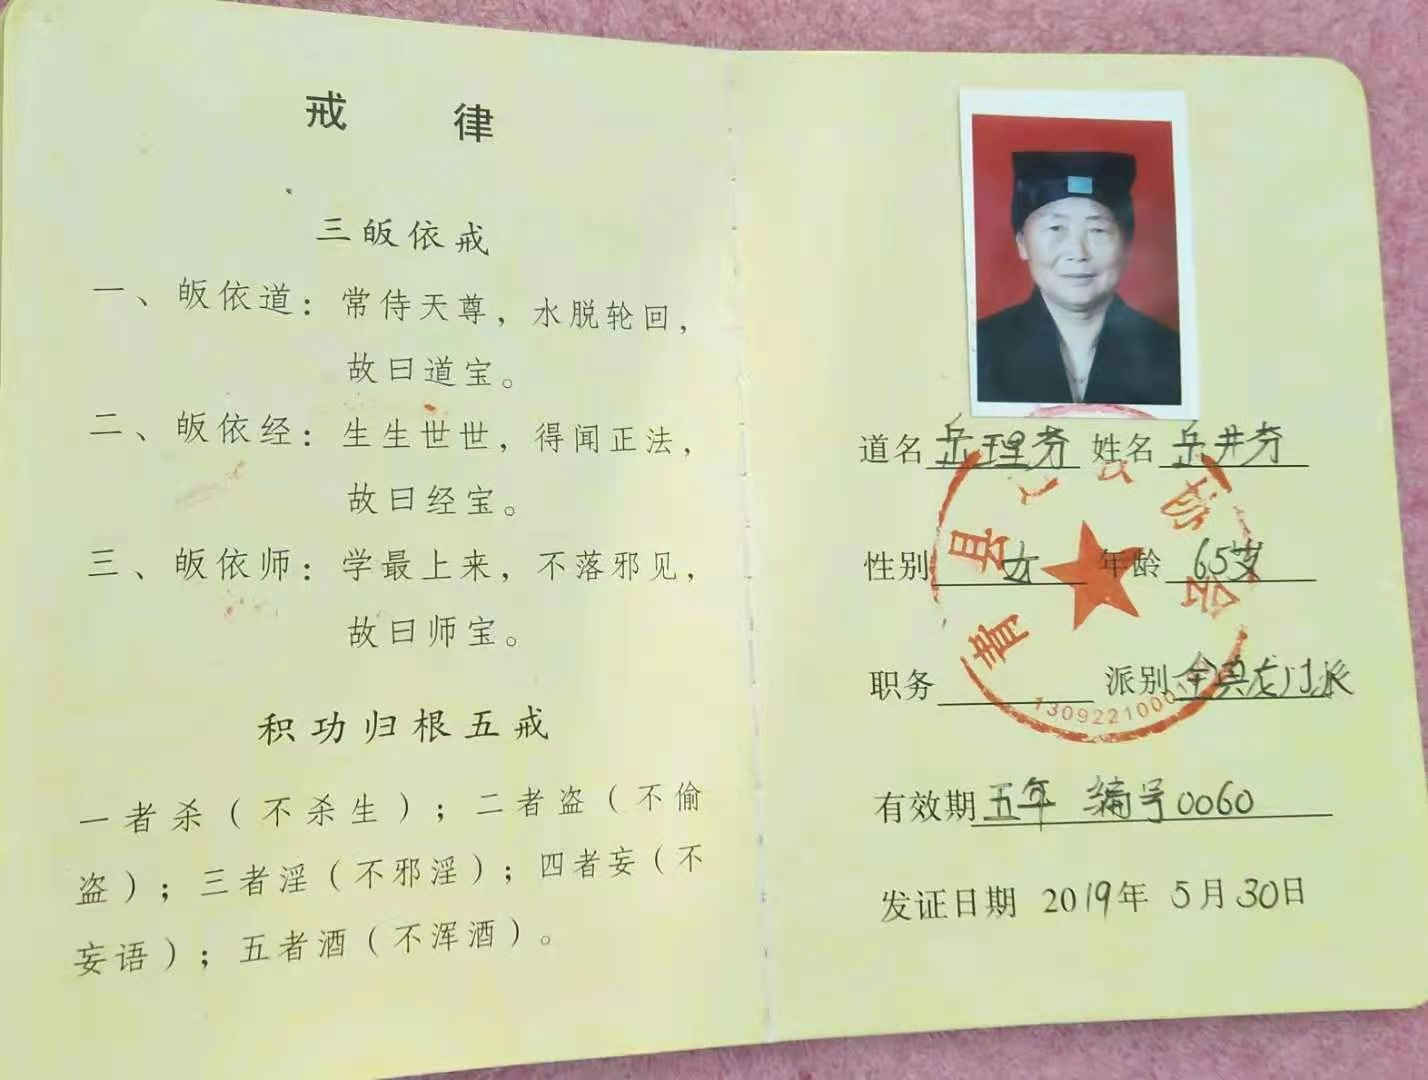 戒 律
三皈依戒
一、皈依道：常侍天尊，水脱轮回，
故曰道宝。
二、皈依经：生生世世，得闻正法，
故曰经宝。
三、皈依师：学最上来，不落邪见，
故曰师宝。
积功归根五戒
一者杀（不杀生）；二者盗（不偷
盗）；三者淫（不邪淫）；四者妄（不
妄语）；五者酒（不浑酒）。
道名 岳理芬 姓名 岳井芬
性别 女 年龄 65岁
职务 派别 全真龙门派
有效期 五年 编号0060
发证日期 2019年 5月30日
青县 协会
130922100